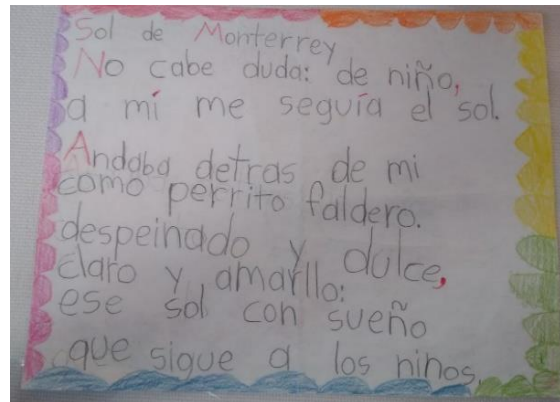 Sol de Monterrey
No cabe duda: de niño,
a mí me seguía el sol.
Andaba detras de mi
como perrito faldero.
despeinado y dulce,
claro y amarllo:
ese sol con sueño
que sigue a los ninos.